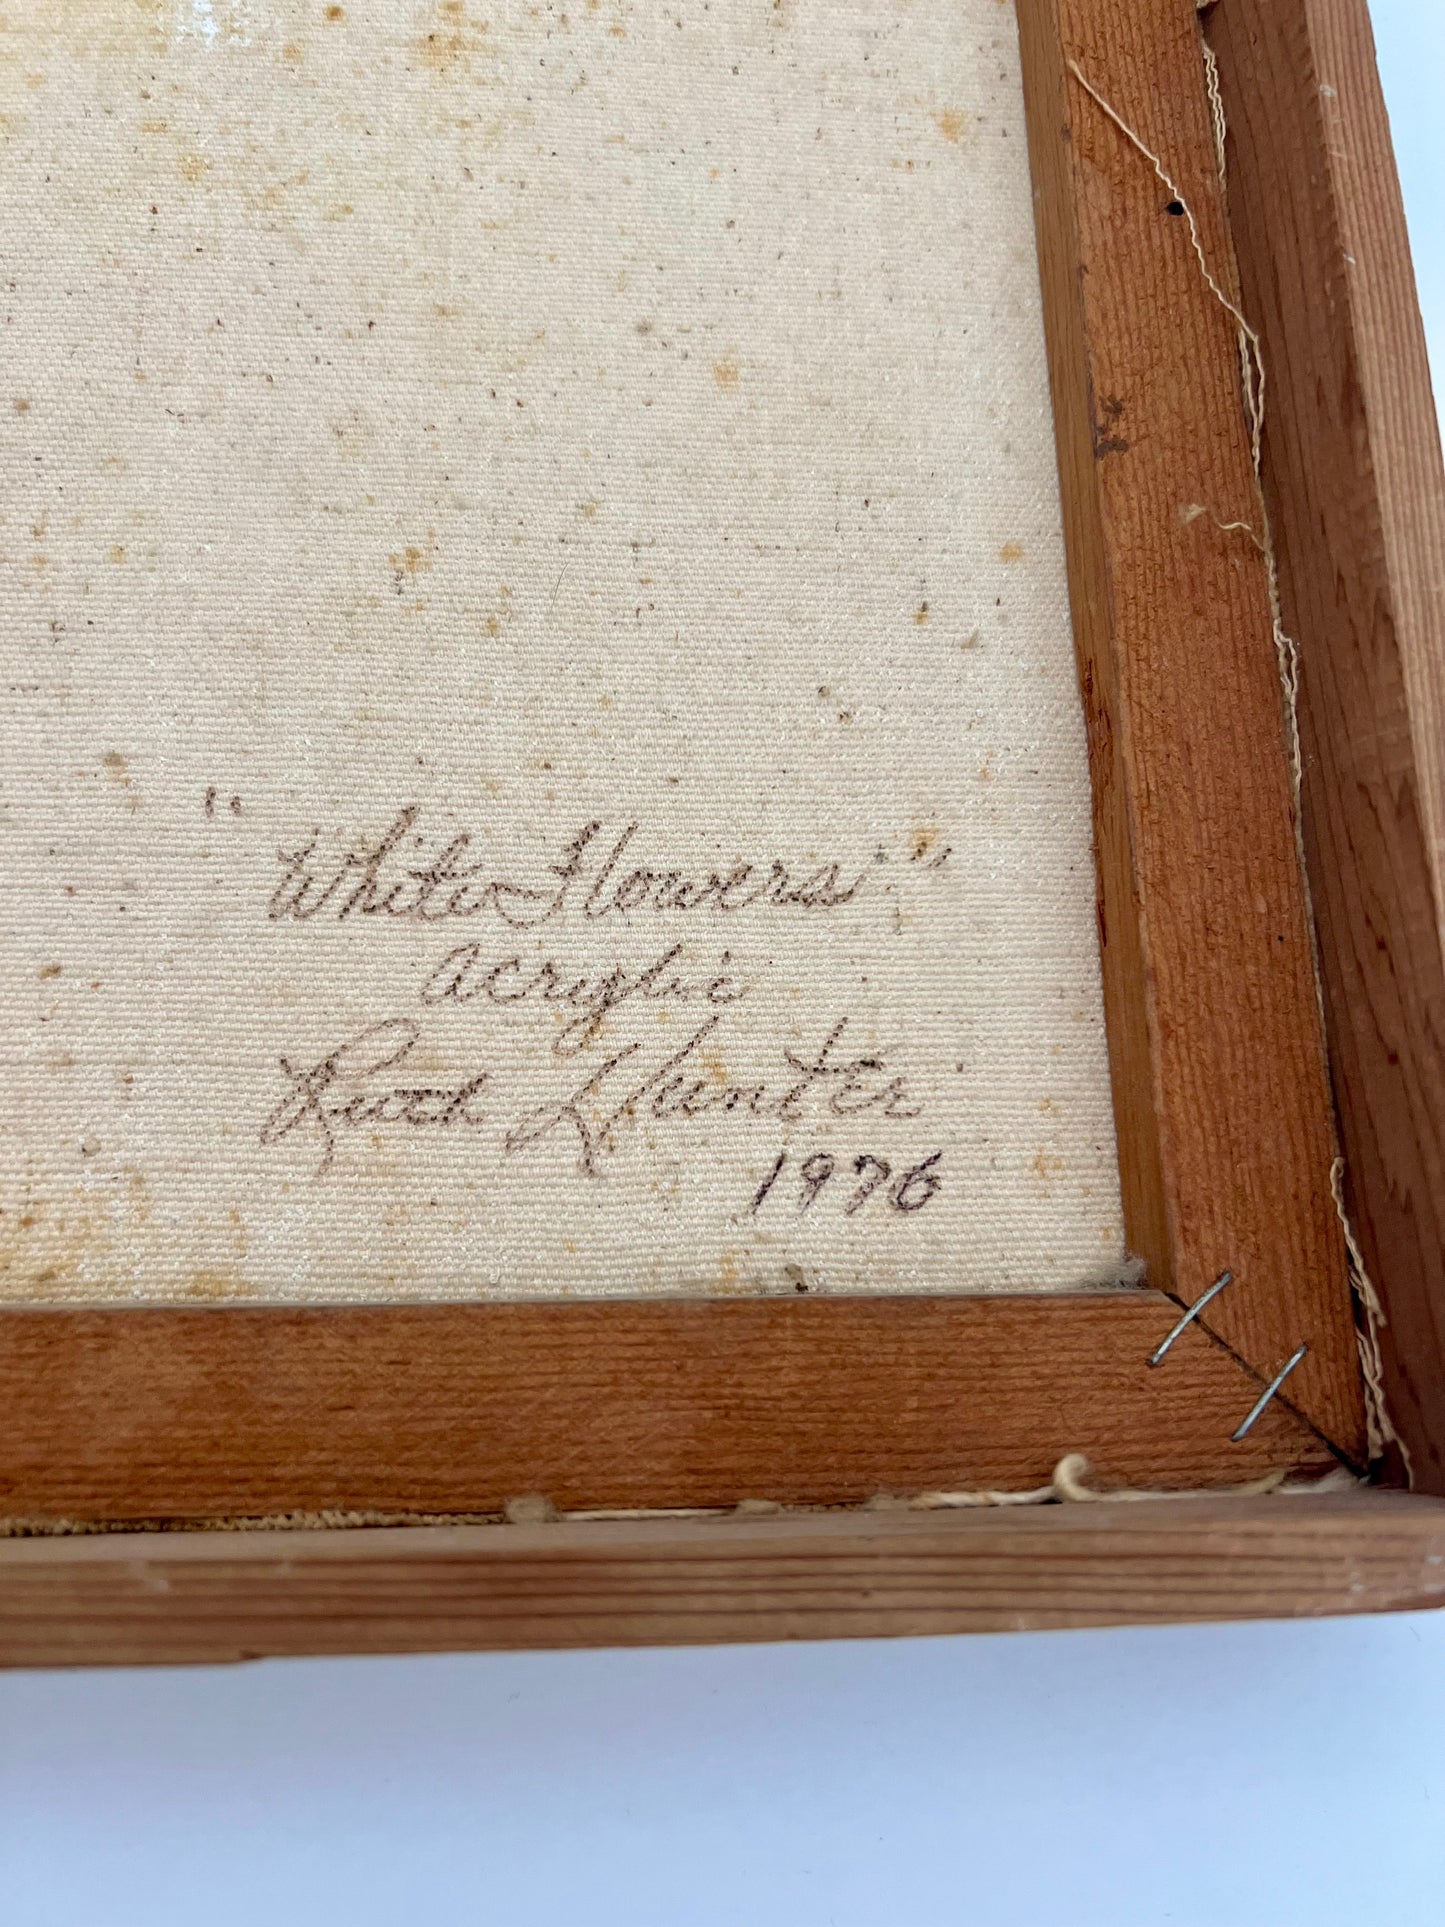 "White Flowers"
acrylic
Ruth Hunter
1976